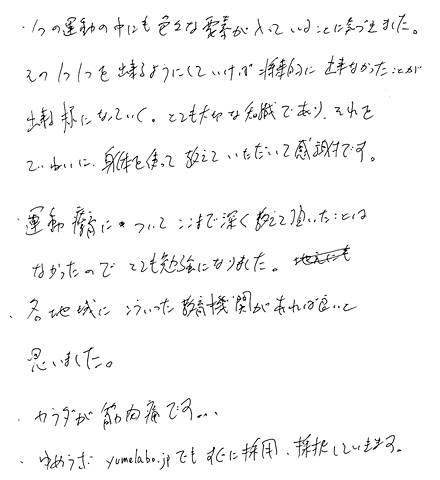 ・1つの運動の中にも色々な要素が入っていることに気づきました。
その1つ1つを出来るようにしていけば将来的に出来なかったことが
出来る様になっていく。とても大切な知識であり、それを
ていねいに、身体を使って教えていただいて感謝です。
・運動療育についてここまで深く教えて頂いたことは
なかったのでとても勉強になりました。
・各地域にこういった教育機関があれば良いと
思いました。
・カラダが筋肉痛です...
・ゆめラボ yumelabo.jpでもすぐに採用、採択していきます。